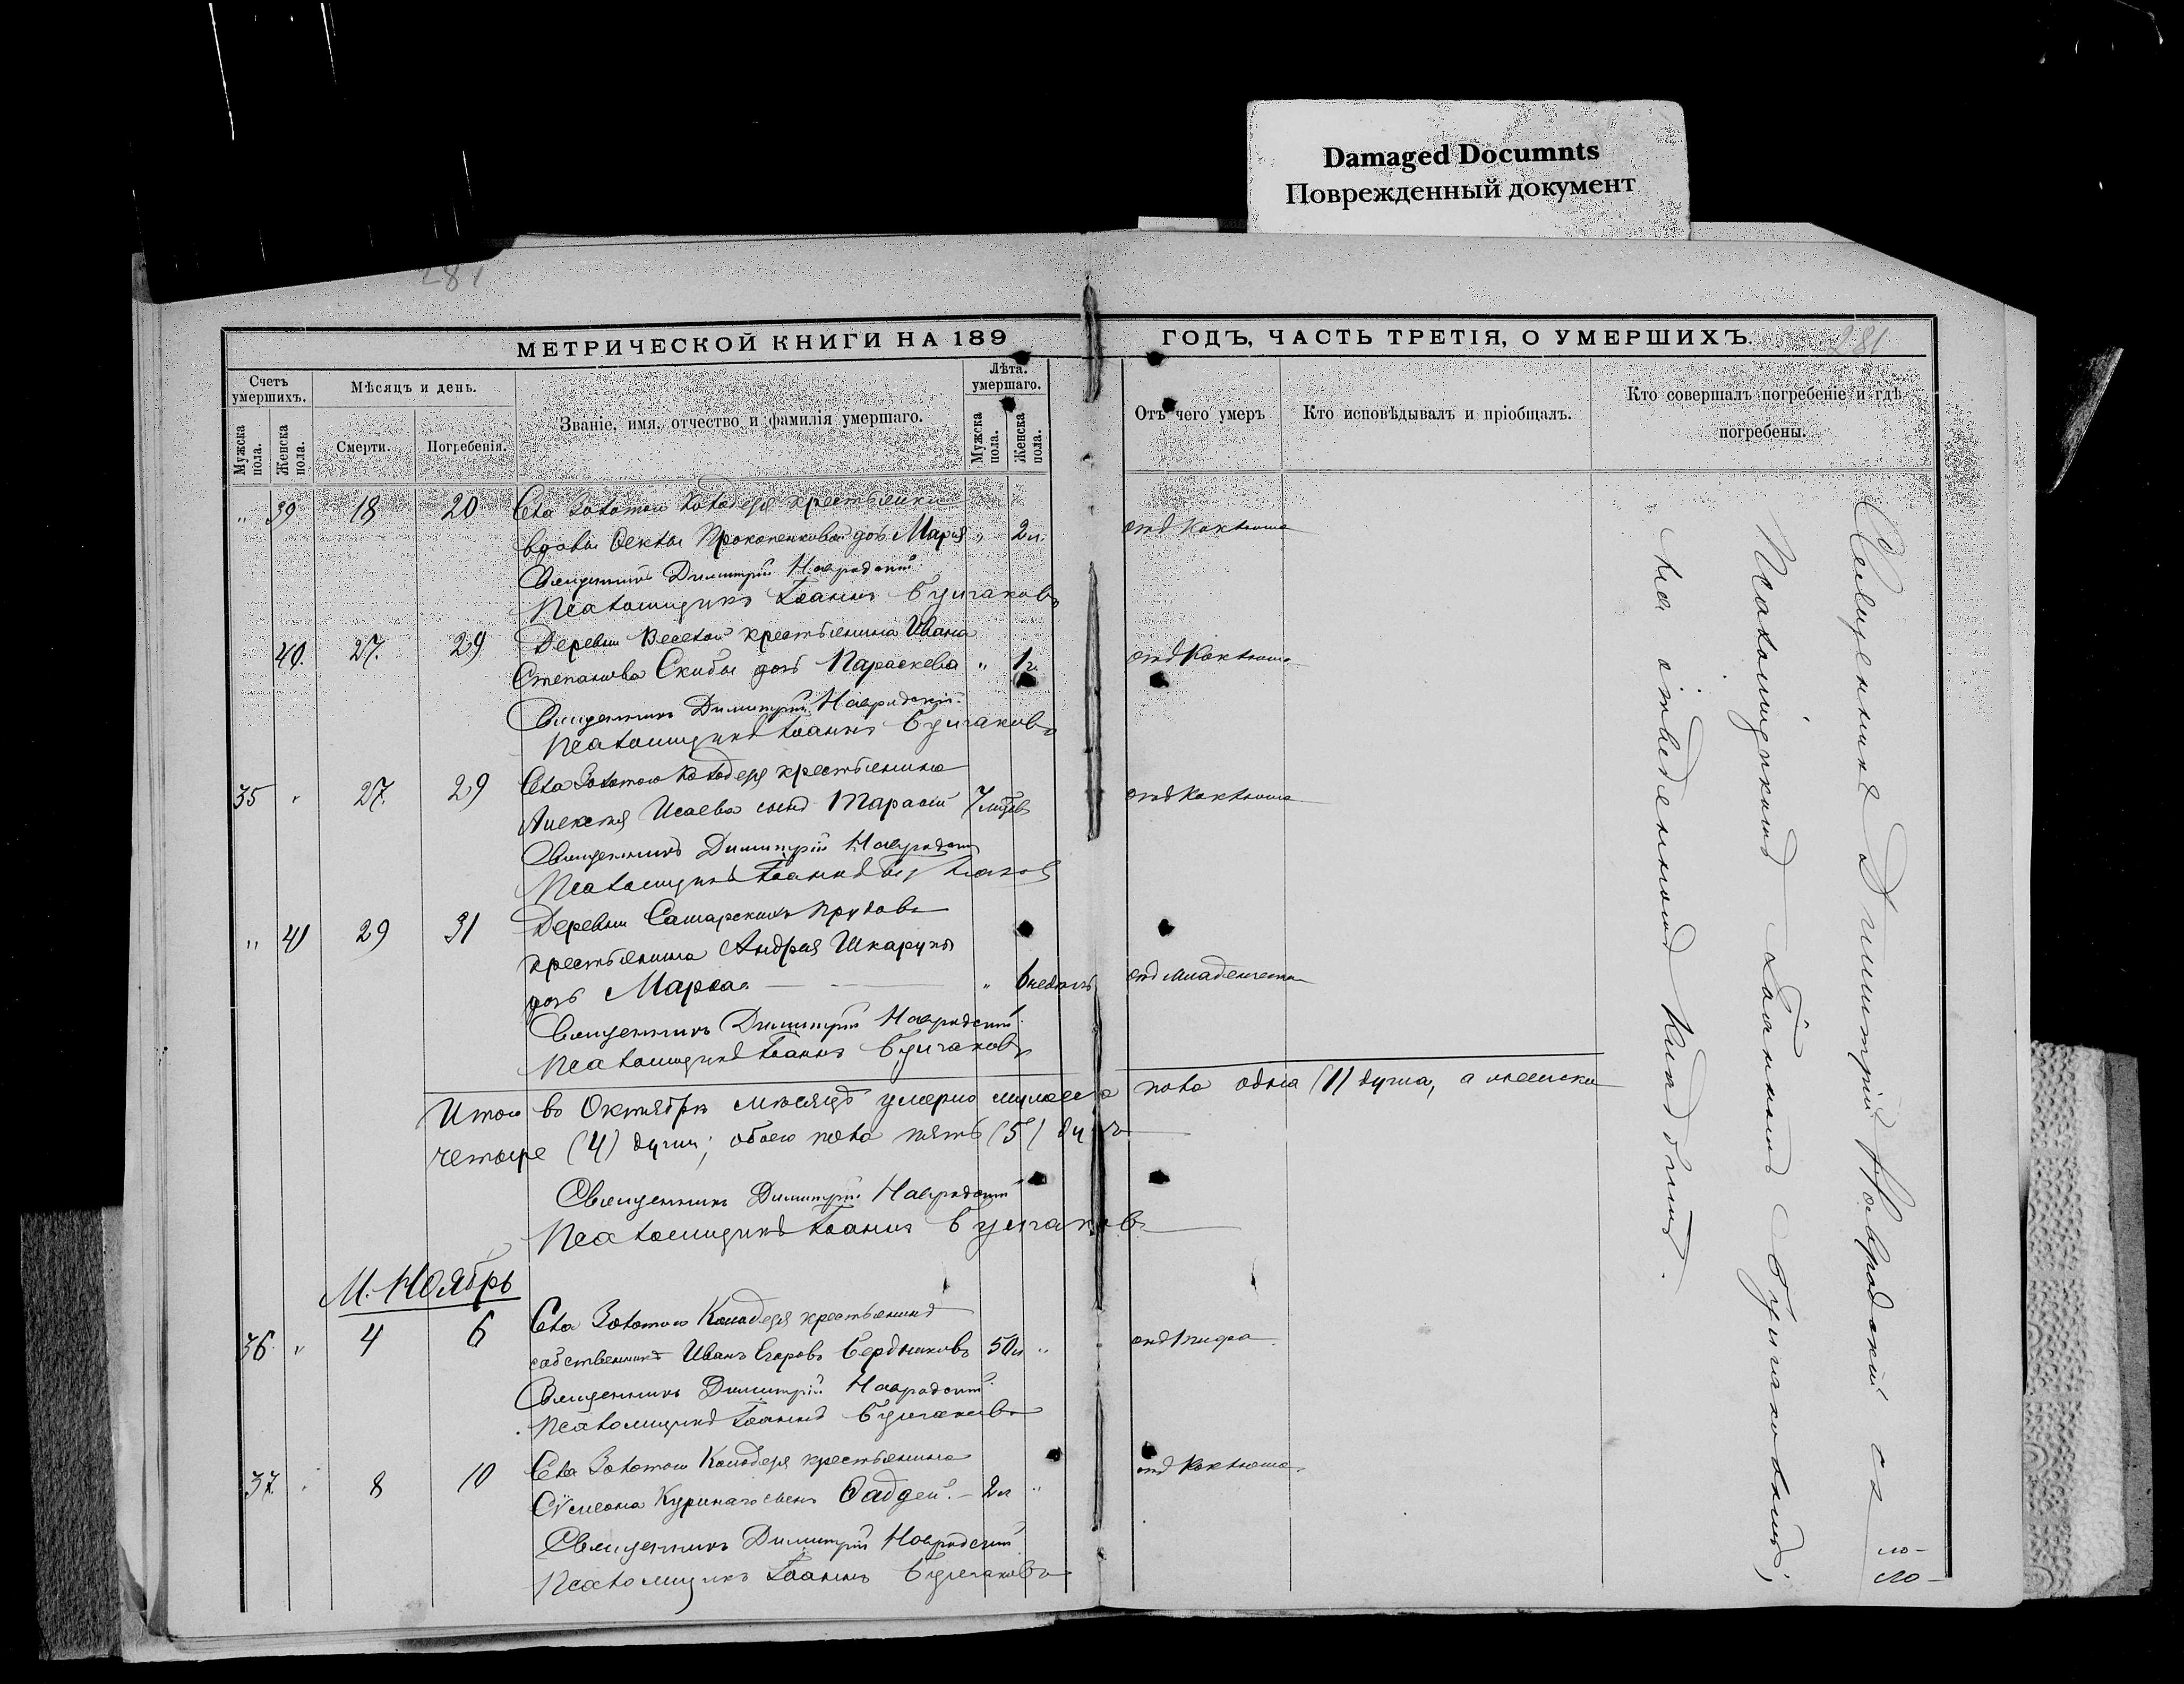 Damaged Documnts
Поврежденный документ
281
МЕТРИЧЕСКОЙ КНИГИ НА 189
ГОДЪ, ЧАСТЬ ТРЕТІЯ, О УМЕРШИХЪ.
281
Счетъ умершихъ.
Мужска пола.
Женска пола.
Мѣсяцъ и день.
Смерти.
Погребенія.
Званіе, имя, отчество и фамилія умершаго.
Лѣта. умершаго.
Мужска пола.
Женска пола.
Отъ чего умеръ
Кто исповѣдывалъ и пріобщалъ.
Кто совершалъ погребеніе и гдѣ погребены.
" 39 18 20 Села Золотого Колодезя крестьянки
вдовы Феклы Прокопенковой дочь Марія " 2 л. отъ Коклюша
Священникъ Димитрій Навродскій
Псаломщикъ Іоаннъ Булгаковъ
40. 27. 29 Деревни Веселой крестьянина Ивана
Степанова Скибы дочь Параскева " 1 г. отъ Коклюша
Священникъ Димитрій Навродскій
Псаломщикъ Іоаннъ Булгаковъ
35 " 27. 29 Села Золотого Колодезя крестьянина
Алексѣя Исаева сынъ Тарасій 7 мѣсяц. отъ Коклюша
Священникъ Димитрій Навродскій
Псаломщикъ Іоаннъ Булгаковъ
" 41 29 31 Деревни Самарскихъ прудовъ
крестьянина Андрея Шкарупы
дочь Марѳа " 6 недѣль отъ младенчества
Священникъ Димитрій Навродскій
Псаломщикъ Іоаннъ Булгаковъ
Итого во Октябрѣ мѣсяцѣ умерло мужеска пола одна (1) душа, а женска
четыре (4) души; обоего пола пять (5) душъ
Священникъ Димитрій Навродскій
Псаломщикъ Іоаннъ Булгаковъ
М. Ноябрь
36. " 4 6 Села Золотого Колодезя крестьянинъ
собственникъ Иванъ Егоровъ Бердниковъ 50 л " отъ тифа
Священникъ Димитрій Навродскій
Псаломщикъ Іоаннъ Булгаковъ
37. 8 10 Села Золотого Колодезя крестьянина
Сѵмеона Куринаго сынъ Ѳаддей. 2 л " отъ Коклюша.
Священникъ Димитрій Навродскій
Псаломщикъ Іоаннъ Булгаковъ
Священникъ Димитрій Навродскій съ
Псаломщикомъ Іоанномъ Булгаковымъ;
на отведенномъ Кладбищѣ.